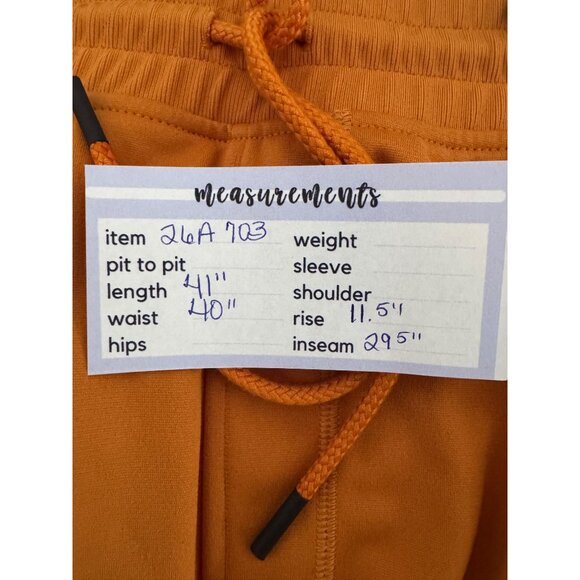 measurements
item 26A 703
pit to pit
length 41"
waist 40"
hips
weight
sleeve
shoulder
rise 11.5"
inseam 29.5"